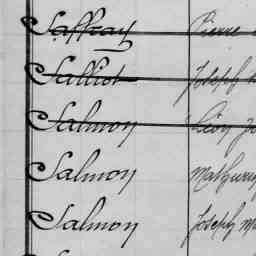 Saffray Pierre
Salliot Joseph
Salmon Léon Jo
Salmon Mathurin
Salmon Joseph Ma